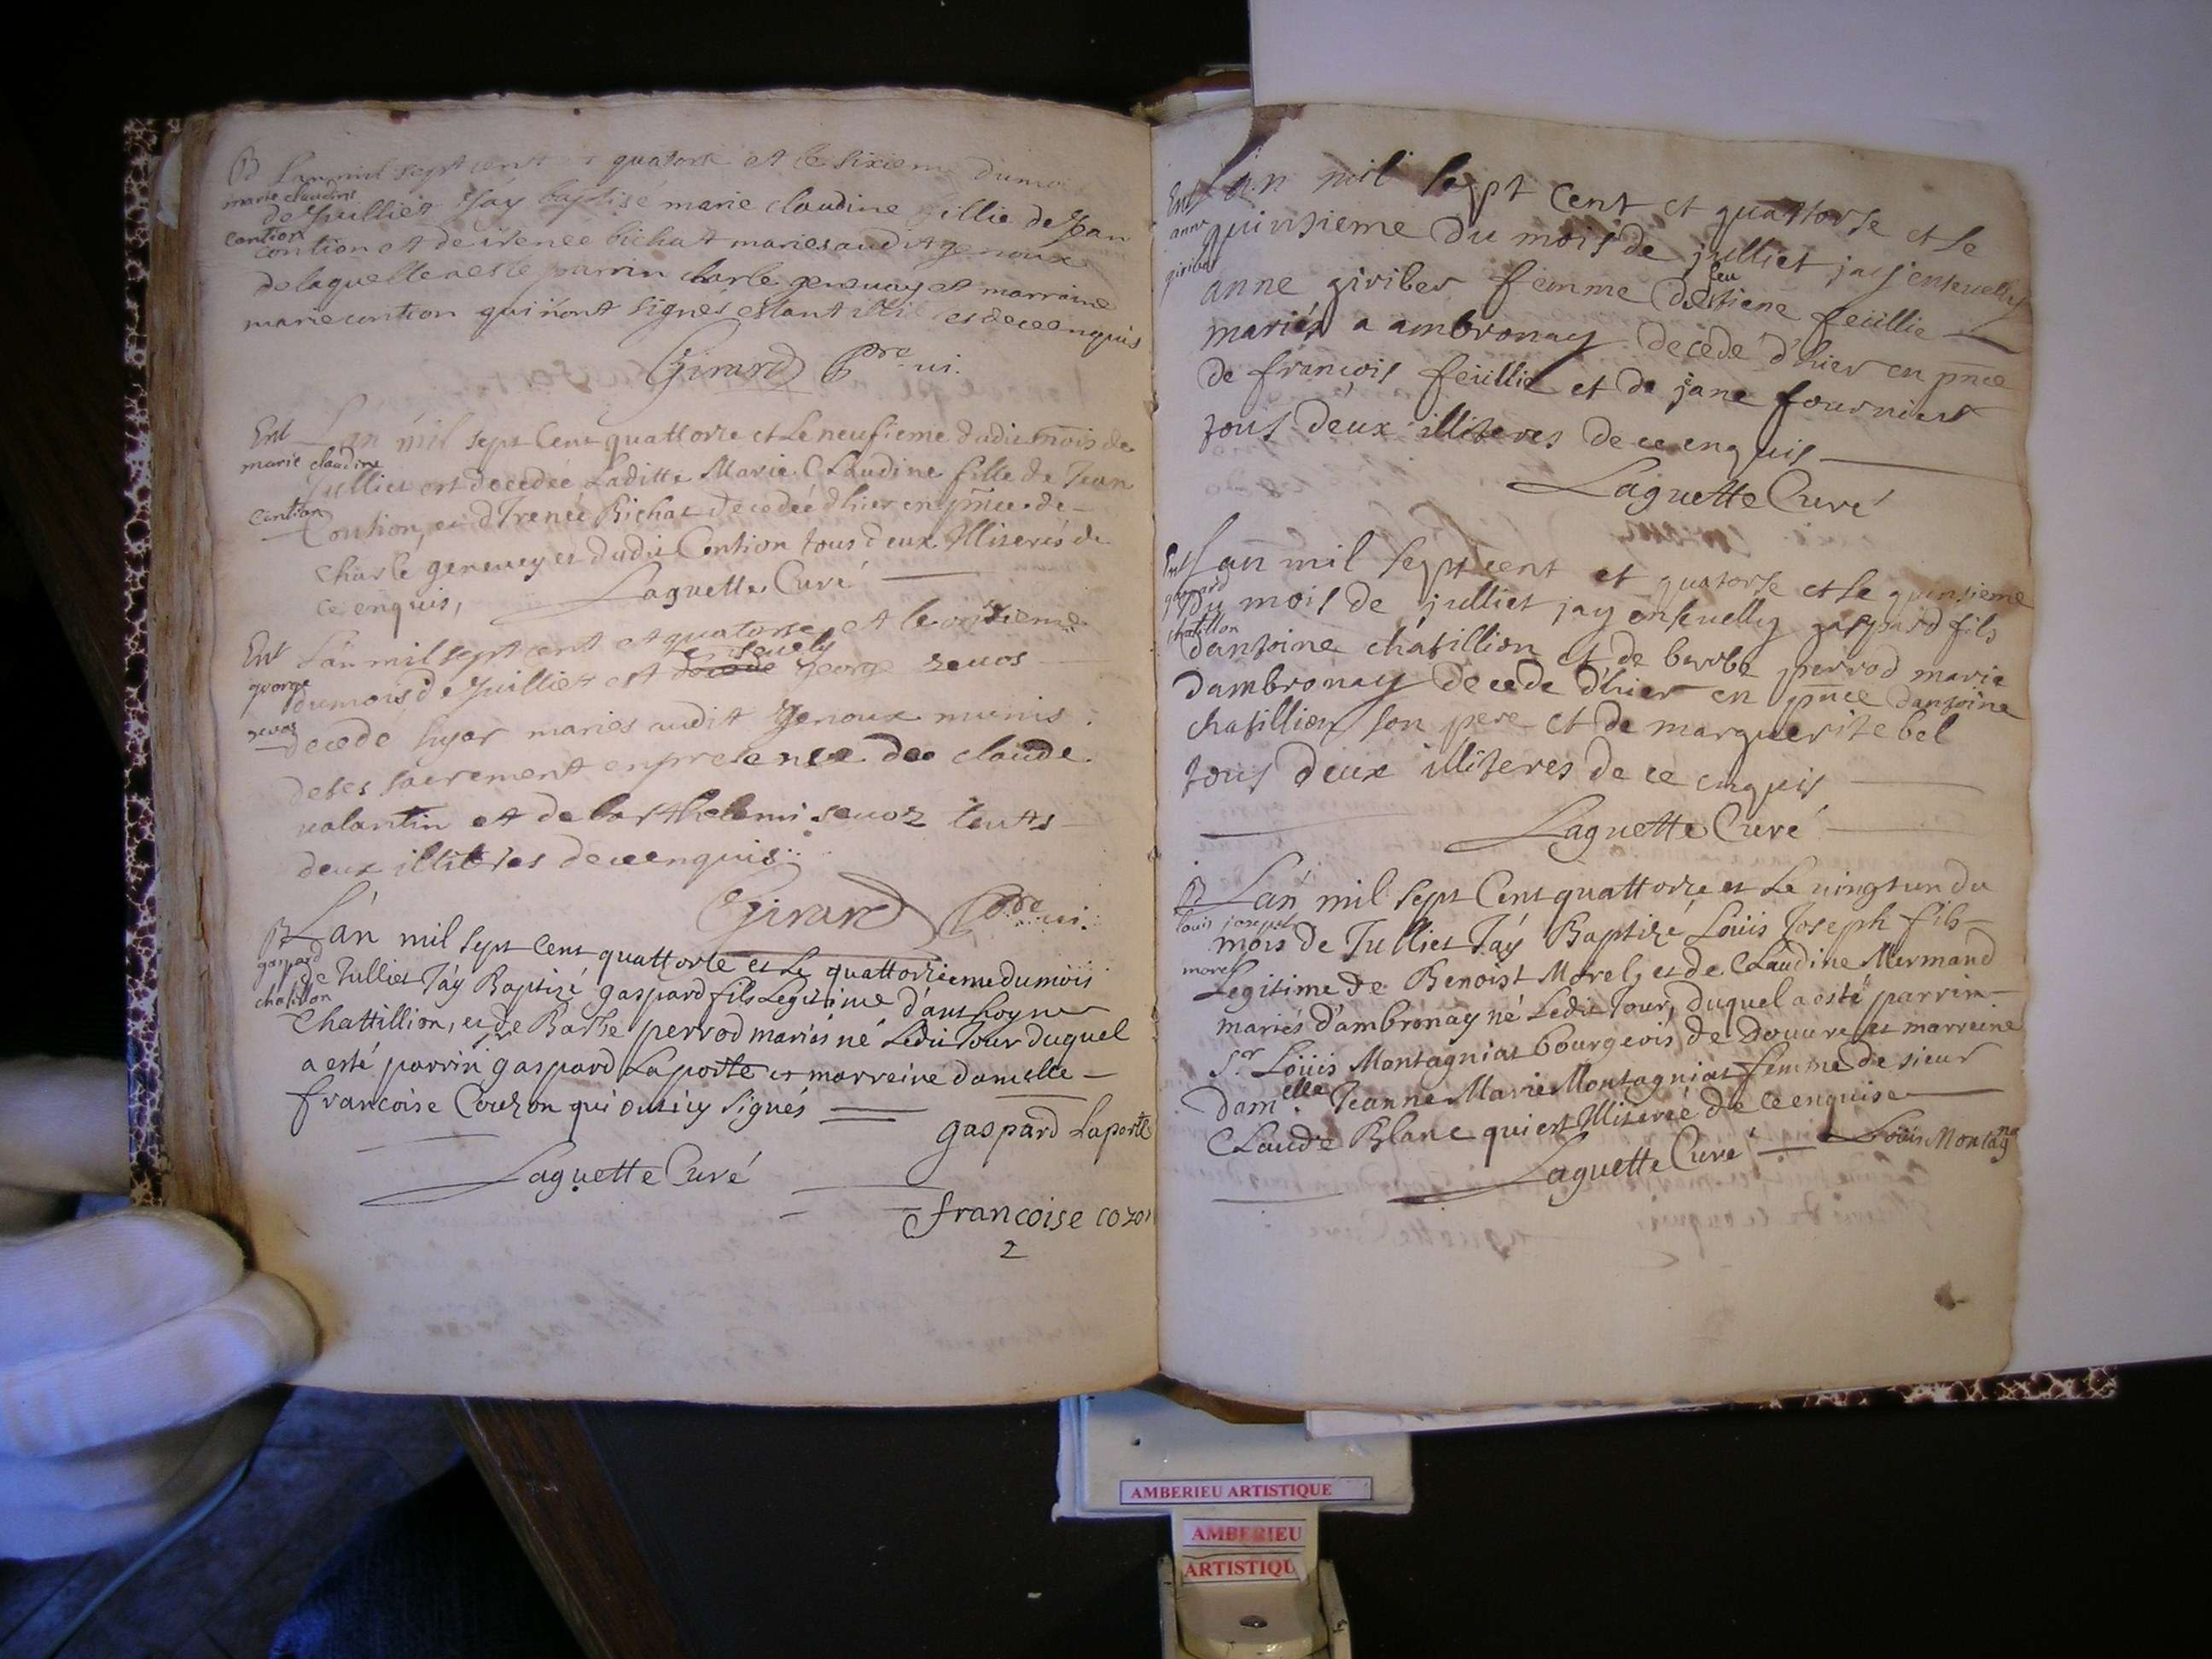 B L'an mil sept cent quatorse et le sixieme du mois
marie claudine
de juilliet j'ay baptisé marie claudine fillie de jean
Contion
contion et de irenee bichat maries audit genoux
de laquelle a este parrin charle geneuay et marraine
marie contion qui n'ont signes estant de ce enquis
Girard
Ent L'an mil sept Cent quattorze et Le neufieme dudit mois de
marie claudine
Julliet est decedée Laditte Marie Claudine fille de Jean
Contion
Contion, et d'Irenée Bichat decedée d'hier en pnce de
Charle genevey et dudit Contion tous deux Illiterés de
ce enquis, Laguette Curé
Ent L'an mil sept cent et quatorse et le onzieme
sevely
george du mois de juilliet est decede george seuos
seuos
decede hyer maries audit genoux munis
de ses sacrement en presence de claude
valantin et de barthelemi seuoz touts
deux illitéres de ce enquis
Girard
B L'an mil sept Cent quattorze et Le quattorzieme du mois
gaspard
de Julliet J'ay Baptizé gaspard fils Legitime d'anthoyne
chatillon
Chattillion, et de Barbe perrod mariés né Ledit Jour duquel
a esté parrin gaspard Laporte et marreine damelle
francoise Couzon qui ont icy signés
gaspard Laporte
Laguette Curé
francoise cozon
2
Ent L'an mil sept Cent et quattorse et le
anne
quinsieme du mois de julliet jay ensevelly
giriber
feu
anne giriber femme de etiene feüllie
mariés a ambronay decede d'hier en pnce
de françois feüllie et de jane fournier
tous deux illiteres de ce enquis
Laguette Curé
Ent Lan mil sept cent et quatorse et le quinsieme
gaspard
du mois de julliet jay ensevelly gaspard fils
chatillon
dantoine chatillion et de barbe perrod marie
dambronay decede d'hier en pnce dantoine
chatillion son pere et de marguerite bel
tous deux illiteres de ce enquis
Laguette Curé
B L'an mil sept Cent quattorze et Le vingt un du
louis joseph
mois de Julliet J'ay Baptizé Loüis Joseph fils
morel
Legitime de Benoist Morel, et de Claudine Mermand
mariés d'ambronay né Ledit Jour, duquel a esté parrin
Sr Loüis Montagniat bourgeois de Douvre et marreine
damelle Jeanne Marie Montagniat femme de sieur
Claude Blanc qui est Illiterée de ce enquise
Laguette Curé Loüis Montagnat
AMBERIEU ARTISTIQUE
AMBERIEU
ARTISTIQU